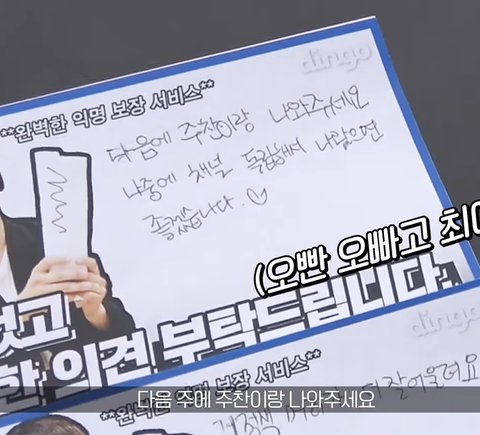 dingo
**완벽한 익명 보장 서비스**
다음에 주찬이랑 나와주세요
나중에 채널 독립해서 나왔으면
좋겠습니다. ♡
(오빤 오빠고 최애
한 의견 부탁드립니다.
dingo
**완벽한 익명 보장 서비스**
잘어울려요
다음 주에 주찬이랑 나와주세요